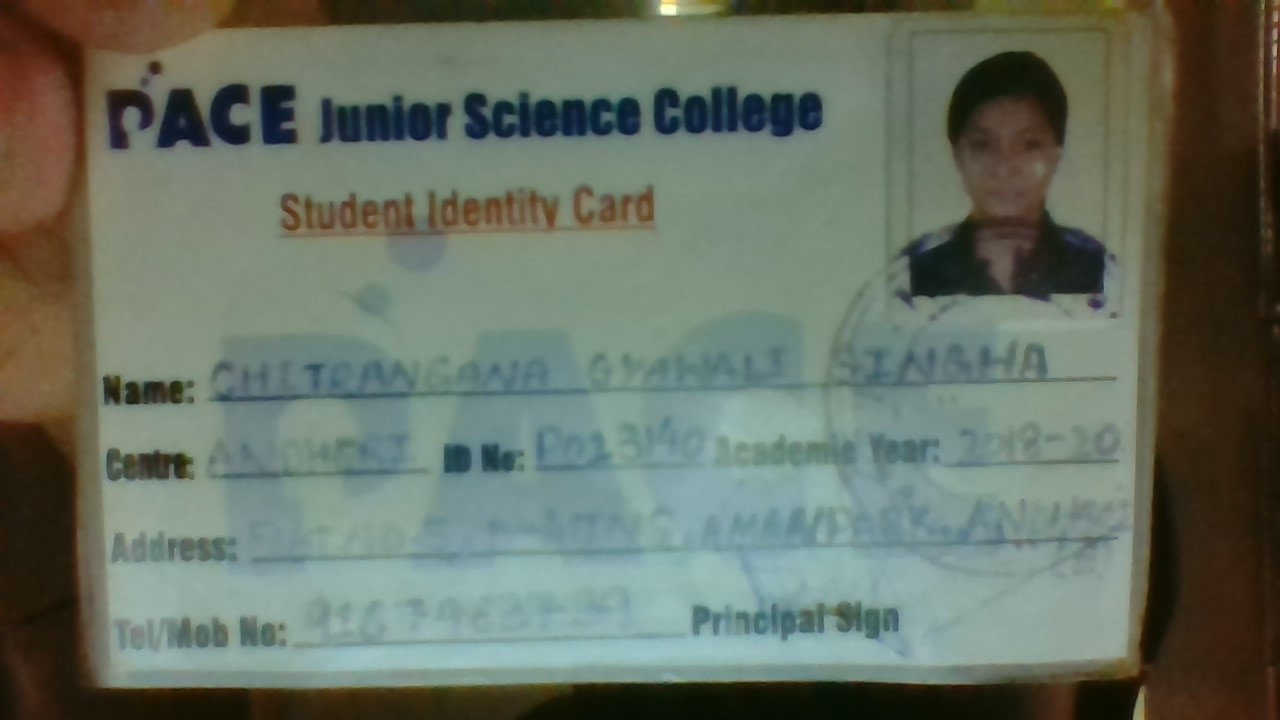 PACE Junior Science College
Student Identity Card
Name: CHITRANGANA GYAWALI SINGHA
Centre: ANDHERI ID No: P023140 Academic Year: 2018-20
Address: AMAN PARK, ANDHERI
Tel/Mob No:
Principal Sign